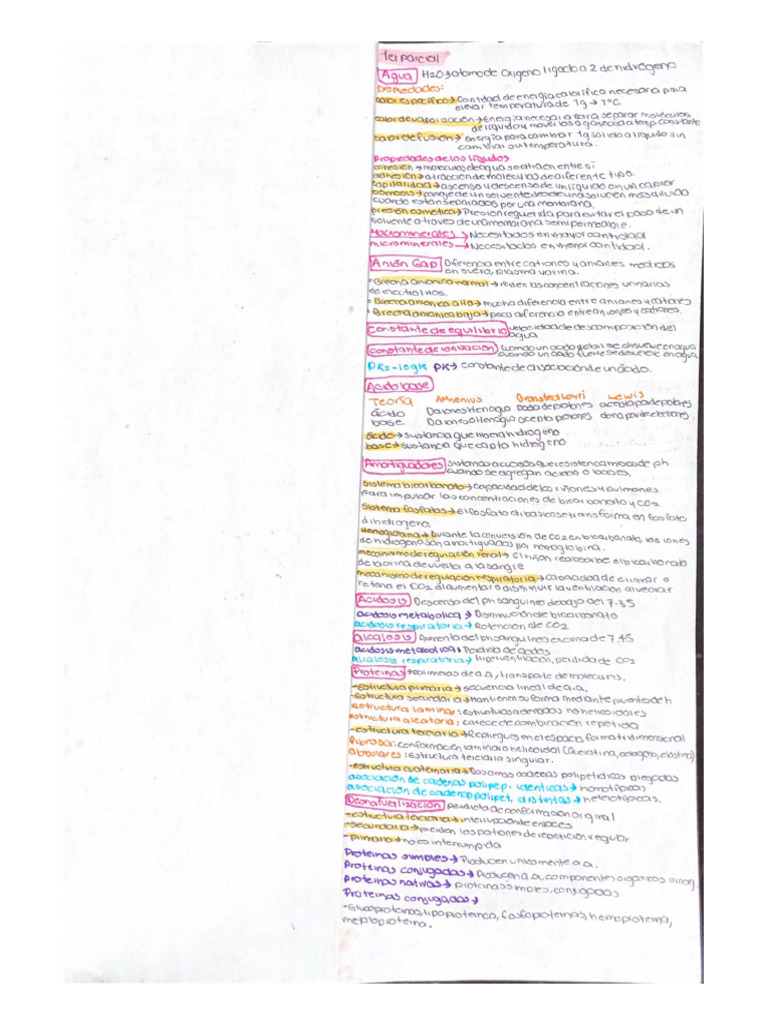 1er parcial
Agua H2O → atomo de Oxigeno ligado a 2 de hidrogeno
Propiedades:
calor especifico → Cantidad de energia calorifica necesaria para
elevar temperatura de 1g → 1°C
calor de vaporización → Energia necesaria para separar moleculas
de liquido y moverlos a gaseoso a temp. constante
calor de fusión → energia para cambiar 1g solido a liquido sin
cambiar su temperatura.
Propiedades de los liquidos
cohesión → moleculas de agua se atraen entre si
adhesión → atracción de moleculas de diferente tipo.
capilaridad → ascenso y descenso de un liquido en un capilar
osmosis → de un solvente desde una solución mas diluida
cuando estan separados por una membrana.
presión osmotica → Presion requerida para evitar el paso de un
solvente a traves de una membrana semipermeable.
Macrominerales → Necesitados en mayor cantidad
microminerales → Necesitados en menor cantidad.
Anión Gap Diferencia entre cationes y aniones medidos
en suero, plasma y orina.
• Brecha anionica normal → miden las concentraciones urinarias
de electrolitos.
• Brecha anionica alta → mucha diferencia entre aniones y cationes
• Brecha anionica baja → poca diferencia entre aniones y cationes.
Constante de equilibrio velocidad de descomposición del
agua
constante de ionización cuando un acido debil se disuelve en agua
cuando un acido fuerte se disuelve en agua.
PK=-logK PK → constante de disociación de un ácido.
Acido base
Teoría Arrhenius Bronsted Lowri Lewis
ácido Da iones H en agua Dador de protones acepta par de potones
base Da iones OH en agua acepta protones dona par de electrones
ácido → sustancia que libera hidrogeno
base → sustancia que capta hidrogeno
Amortiguadores Sistemas acuosos que resisten cambios de ph
cuando se agregan acidos o bases.
Sistema bicarbonato → capacidad de los riñones y pulmones
para impulsar las concentraciones de bicarbonato y CO2
sistema fosfatos → El fosfato dibasico se transforma en fosfato
dihidrogeno.
Hemoglobina → Durante la conversión de CO2 en bicarbonato, los iones
de hidrogeno son amortiguados por hemoglobina.
mecanismo de regulación renal → El riñon reabsorbe el bicarbonato
de la orina de vuelta a la sangre
mecanismo de regulación respiratoria → Capacidad de eliminar o
retener el CO2 al aumentar o disminuir la ventilacion alveolar
Acidosis Descenso del ph sanguineo debajo del 7.35
acidosis metabolica → Disminución de bicarbonato
acidosis respiratoria → Retención de CO2
alcalosis Aumento del ph sanguineo encima de 7.45
acidosis metabolica → Perdida de acidos
alcalosis respiratoria → Hiperventilación, perdida de CO2
Proteinas → Polimeros de a.a, transporte de moleculas.
-estructura primaria → secuencia lineal de a.a.
-estructura secundaria → mantienen su forma mediante puentes de h
estructura laminar: estructuras ordenadas no helicoidales
estructura aleatoria: carece de combinación repetida
-estructura terciaria → Repliegues en el espacio, forma tridimensional
Fibrosa: conformación laminar o helicoidal (queratina, colageno, elastina)
Globulares: estructura terciaria singular.
-estructura cuaternaria → Dos o mas cadenas polipetidicas plegadas
asociación de cadenas polipep. identicas → homotípicos
asociación de cadenas polipet. distintas → heterotípicas.
Desnaturalización perdida de conformación original
-estructura terciaria → interrupción de enlaces
-secundaria → pierden los patrones de repetición regular
-primaria → no es interrumpida
Proteinas simples → Producen unicamente a.a.
Proteinas conjugadas → Producen a.a, componentes organicos o inorg.
Proteinas nativas → proteinas simples, conjugadas
Proteinas conjugadas →
-Glucoproteinas, lipoproteinas, fosfoproteinas, hemoproteina,
metaloproteina.